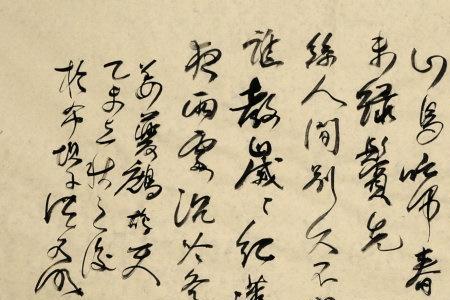 山鳥啼春
未綠鬢先
絲人間別久不
誰教歲〻紅蓮
夜兩處沉吟各
姜夔鷓鴣天
乙未立秋之後